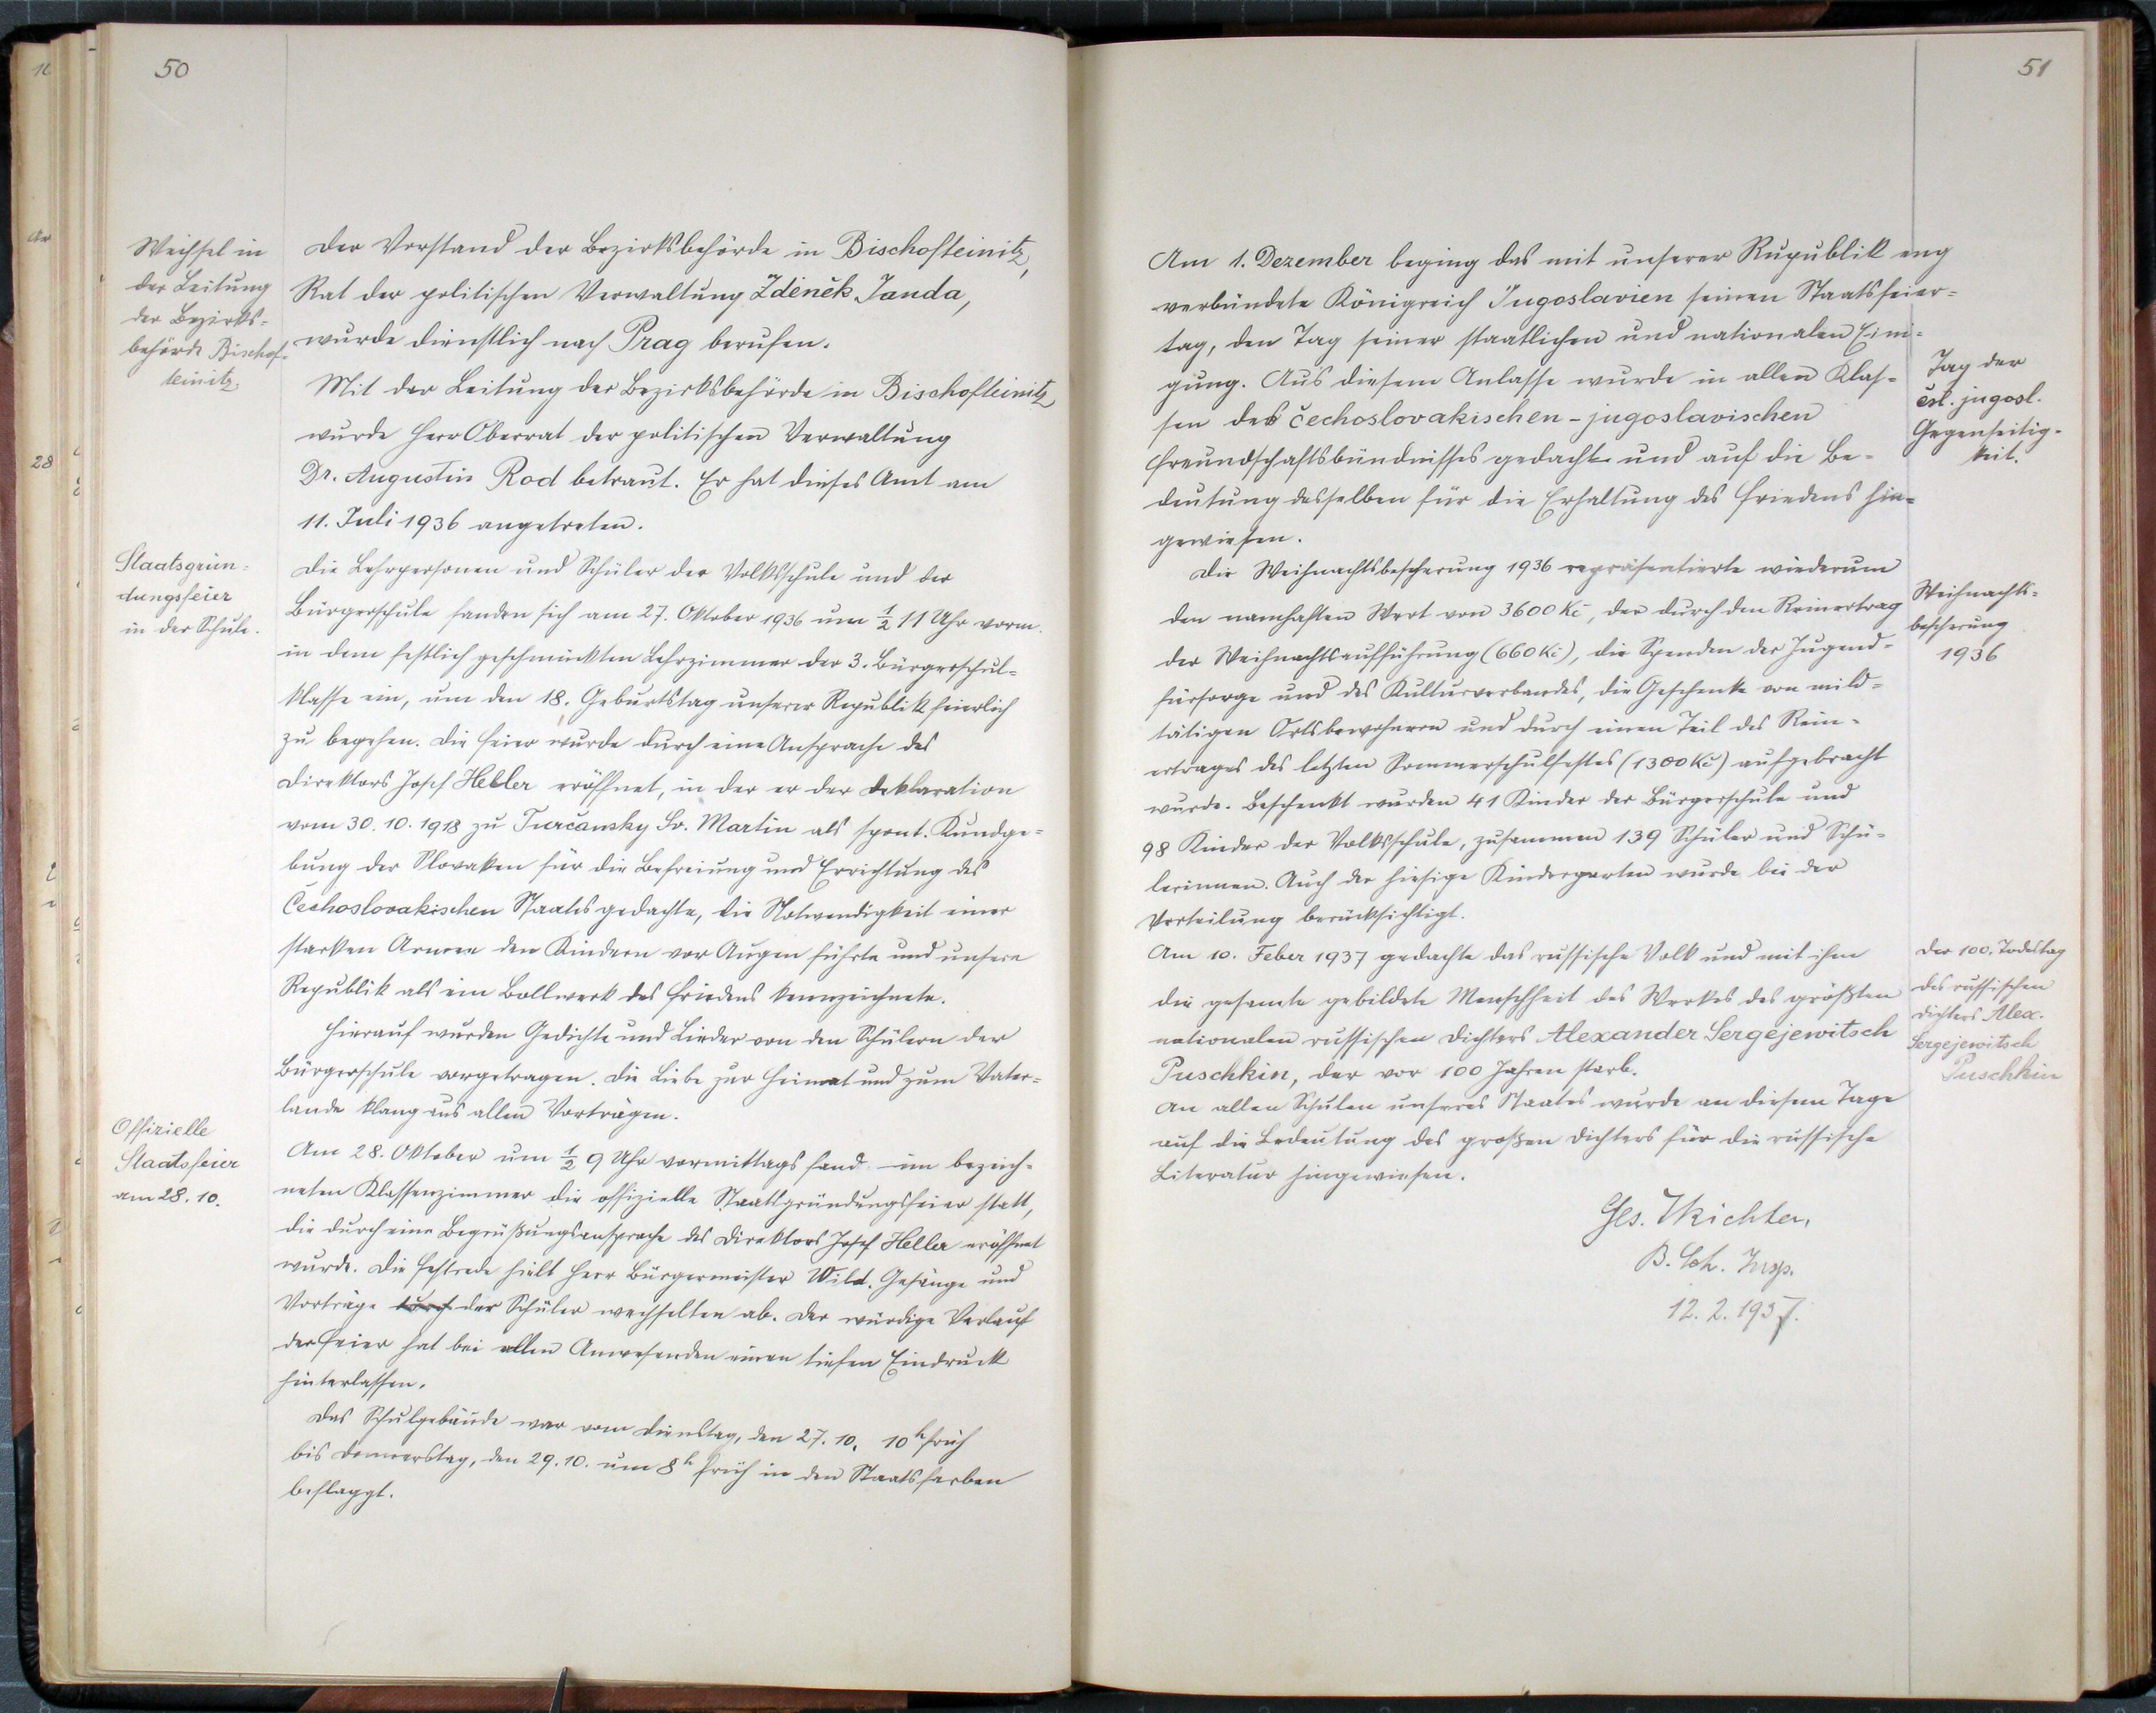 50
Wechsel in
der Leitung
der Bezirks-
behörde Bischof-
teinitz.
Der Vorstand der Bezirksbehörde in Bischofteinitz,
Rat der politischen Verwaltung Zdeněk Janda,
wurde dienstlich nach Prag berufen.
Mit der Leitung der Bezirksbehörde in Bischofteinitz
wurde Herr Oberrat der politischen Verwaltung
Dr. Augustin Rod betraut. Er hat dieses Amt am
11. Juli 1936 angetreten.
Staatsgrün-
dungsfeier
in der Schule.
Die Lehrpersonen und Schüler der Volksschule und der
Bürgerschule fanden sich am 27. Oktober 1936 um ½ 11 Uhr vorm.
in dem festlich geschmückten Lehrzimmer der 3. Bürgerschul-
klasse ein, um den 18. Geburtstag unserer Republik feierlich
zu begehen. Die Feier wurde durch eine Ansprache des
Direktors Josef Heller eröffnet, in der er der Deklaration
vom 30.10.1918 zu Turčansky Sv. Martin als spont. Kundge-
bung der Slovaken für die Befreiung und Errichtung des
Čechoslovakischen Staates gedachte, die Notwendigkeit einer
starken Armee den Kindern vor Augen führte und unsere
Republik als ein Bollwerk des Friedens kennzeichnete.
Hierauf wurden Gedichte und Lieder von den Schülern der
Bürgerschule vorgetragen. Die Liebe zur Heimat und zum Vater-
lande klang aus allen Vorträgen.
Offizielle
Staatsfeier
am 28. 10.
Am 28. Oktober um ½ 9 Uhr vormittags fand im bezeich-
neten Klassenzimmer die offizielle Staatsgründungsfeier statt,
die durch eine Begrüßungsansprache des Direktors Josef Heller eröffnet
wurde. Die Festrede hielt Herr Bürgermeister Wild. Gesänge und
Vorträge durch der Schüler wechselten ab. Der würdige Verlauf
der Feier hat bei allen Anwesenden einen tiefen Eindruck
hinterlassen.
Das Schulgebäude war vom Dienstag, den 27. 10. 10h früh
bis Donnerstag, den 29. 10. um 8h früh in den Staatsfarben
beflaggt.
51
Am 1. Dezember beging das mit unserer Rupublik eng
verbündete Königreich Jugoslavien seinen Staatsfeier-
tag, den Tag seiner staatlichen und nationalen Eini-
gung. Aus diesem Anlasse wurde in allen Klas-
sen des čechoslovakischen-jugoslavischen
Freundschaftsbündnisses gedacht und auf die Be-
deutung desselben für die Erhaltung des Friedens hin-
gewiesen.
Tag der
čsl. jugosl.
Gegenseitig-
keit.
Die Weihnachtsbescherung 1936 repräsentierte wiederum
den namhaften Wert von 3600 Kč, der durch den Reinertrag
der Weihnachtsaufführung (660 Kč), die Spenden der Jugend-
fürsorge und des Kulturverbandes, die Geschenke von mild-
tätigen Ortsbewohnern und durch einen Teil des Rein-
ertrages des letzten Sommerschulfestes (1300 Kč) aufgebracht
wurde. Beschenkt wurden 41 Kinder der Bürgerschule und
98 Kinder der Volksschule, zusammen 139 Schüler und Schü-
lerinnen. Auch der hiesige Kindergarten wurde bei der
Verteilung berücksichtigt.
Weihnachts-
bescherung
1936
Am 10. Feber 1937 gedachte das russische Volk und mit ihm
die gesamte gebildete Menschheit des Werkes des größten
nationalen russischen Dichters Alexander Sergejewitsch
Puschkin, der vor 100 Jahren starb.
An allen Schulen unseres Staates wurde an diesem Tage
auf die Bedeutung des großen Dichters für die russische
Literatur hingewiesen.
Der 100. Todestag
des russischen
Dichters Alex.
Sergejewitsch
Puschkin
Ges.
B. Sch. Insp.
12. 2. 1937.